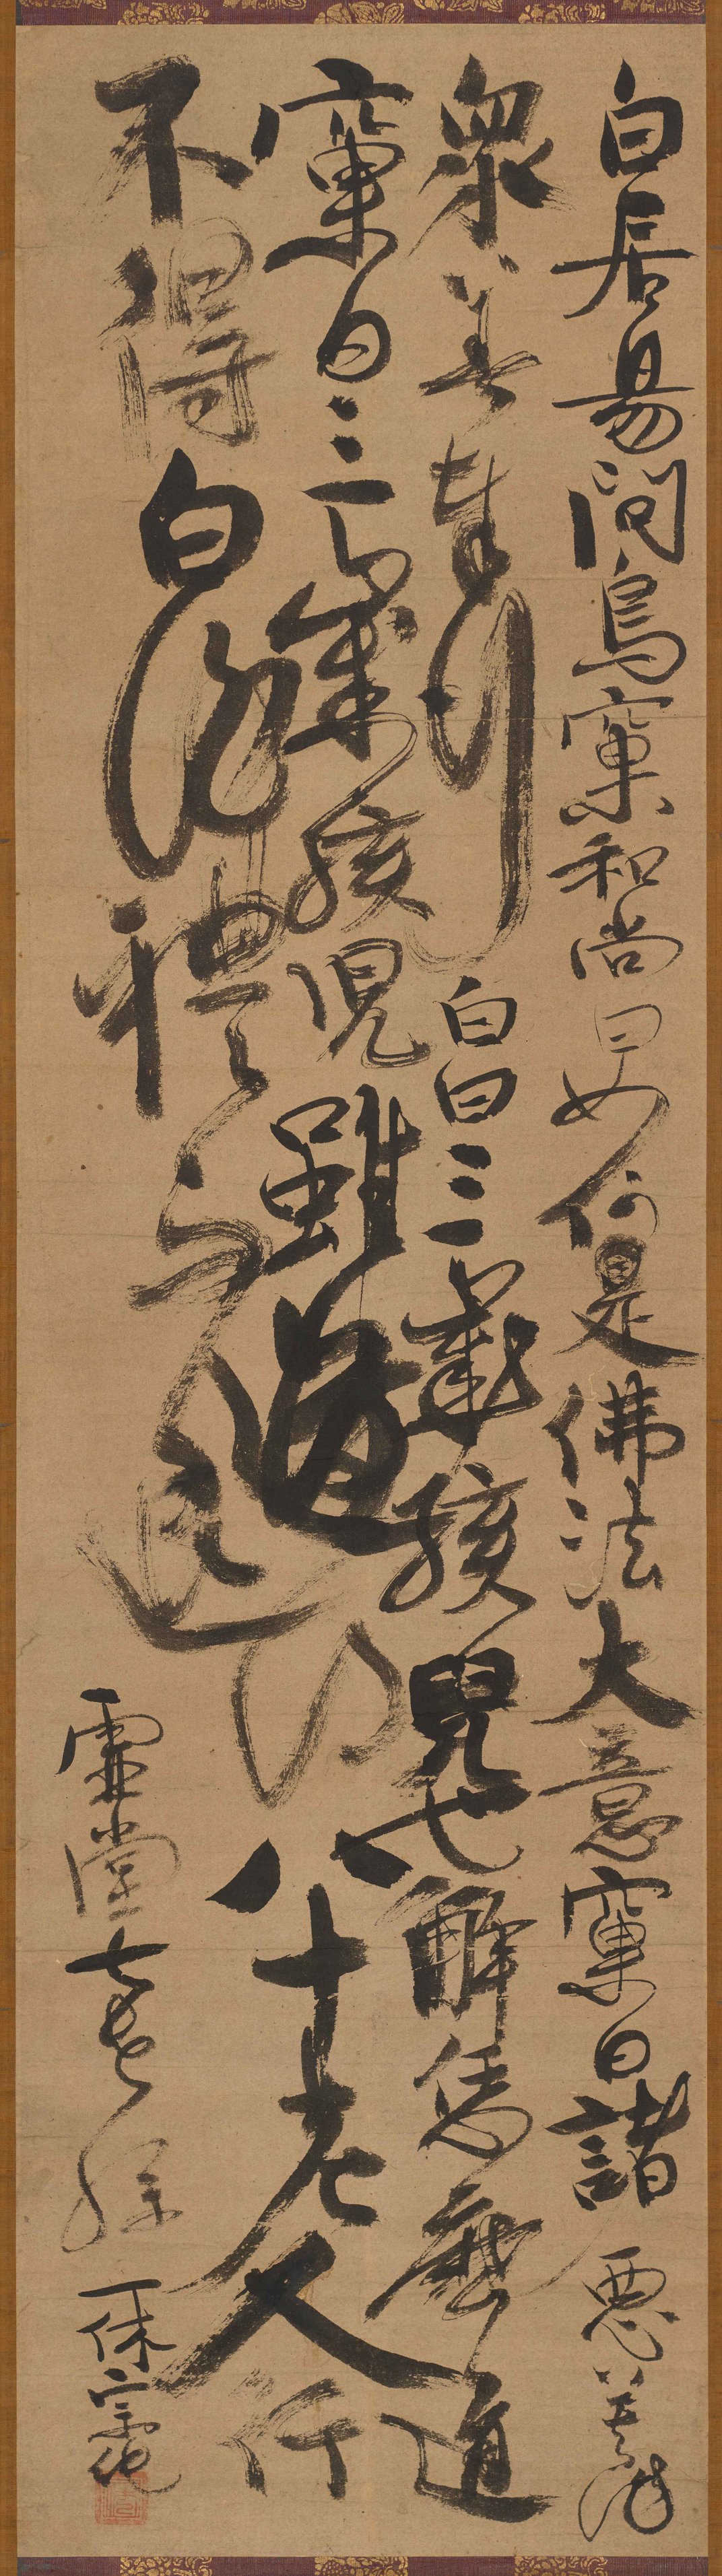 白居易問鳥窠和尚曰如何是佛法大意窠曰諸惡莫作
衆善奉行白曰三歳孩兒也解恁麼道
窠曰三歳孩児雖道得八十老人行
不得白作禮而退
虚堂七世孫一休宗純